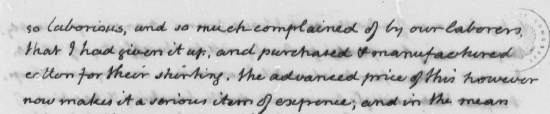 so laborious, and so much complained of by our laborers,
that I had given it up, and purchased & manufactured
cotton for their shirting. the advanced price of this however
now makes it a serious item of expence; and in the mean